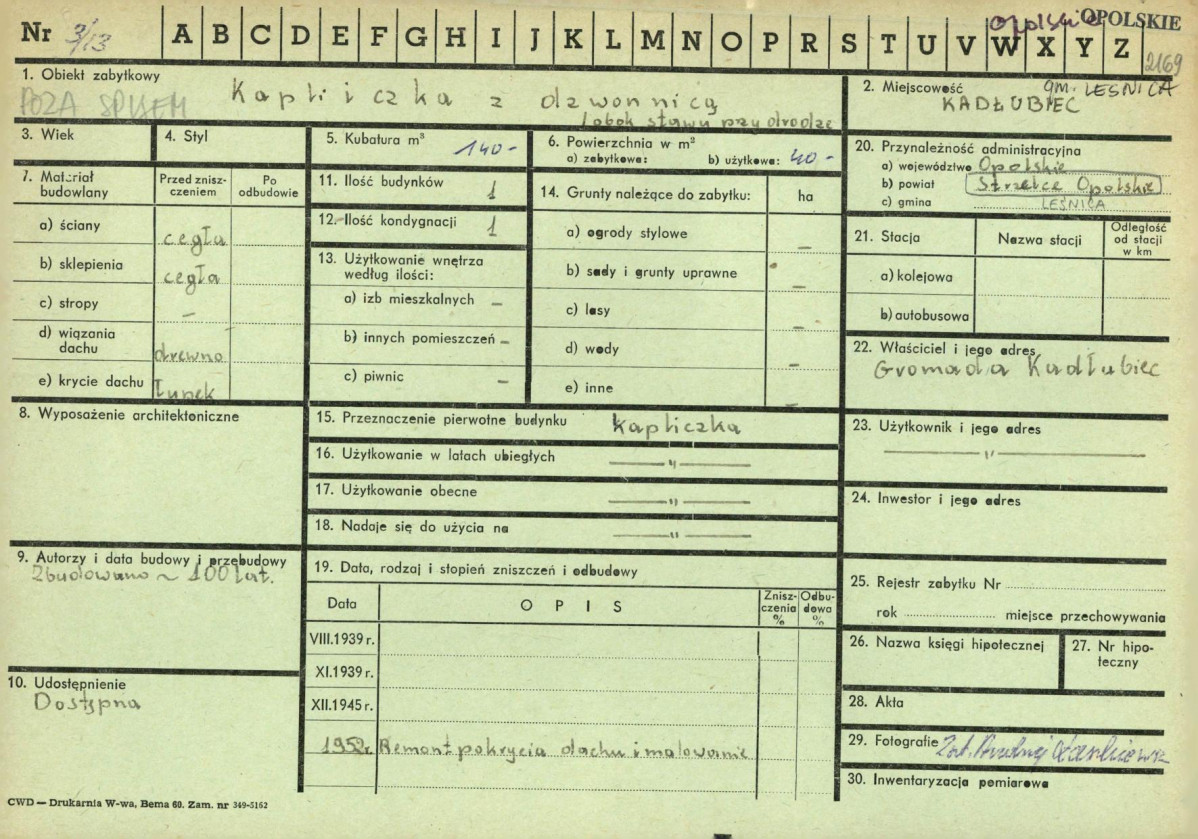 Nr 3/13 A B C D E F G H I J K L M N O P R S T U V W X Y Z
Opolskie OPOLSKIE
2169
1. Obiekt zabytkowy
POZA SPISEM
Kapliczka z dzwonnicą
/obok stawu przy drodze
2. Miejscowość gm. LEŚNICA
KADŁUBIEC
3. Wiek
4. Styl
5. Kubatura m³ 140-
6. Powierzchnia w m²
a) zabytkowa: b) użytkowa: 40-
7. Materiał budowlany
Przed zniszczeniem
Po odbudowie
a) ściany cegła
b) sklepienia cegła
c) stropy –
d) wiązania dachu drewno
e) krycie dachu łupek
8. Wyposażenie architektoniczne
9. Autorzy i data budowy i przebudowy
Zbudowano ~ 100 lat.
10. Udostępnienie
Dostępna
11. Ilość budynków 1
12. Ilość kondygnacji 1
13. Użytkowanie wnętrza według ilości:
a) izb mieszkalnych –
b) innych pomieszczeń –
c) piwnic –
14. Grunty należące do zabytku: ha
a) ogrody stylowe –
b) sady i grunty uprawne –
c) lasy –
d) wody –
e) inne –
15. Przeznaczenie pierwotne budynku Kapliczka
16. Użytkowanie w latach ubiegłych —"—
17. Użytkowanie obecne —"—
18. Nadaje się do użycia na —"—
19. Data, rodzaj i stopień zniszczeń i odbudowy
Data
OPIS
Zniszczenia %
Odbudowa %
VIII.1939 r.
XI.1939 r.
XII.1945 r.
1952r. Remont pokrycia dachu i malowanie
20. Przynależność administracyjna
a) województwo Opolskie
b) powiat Strzelce Opolskie
c) gmina LEŚNICA
21. Stacja
Nazwa stacji
Odległość od stacji w km
a) kolejowa
b) autobusowa
22. Właściciel i jego adres
Gromada Kadłubiec
23. Użytkownik i jego adres
—"—
24. Inwestor i jego adres
25. Rejestr zabytku Nr
rok miejsce przechowywania
26. Nazwa księgi hipotecznej
27. Nr hipoteczny
28. Akta
29. Fotografie
30. Inwentaryzacja pomiarowa
CWD — Drukarnia W-wa, Bema 60. Zam. nr 349-5162